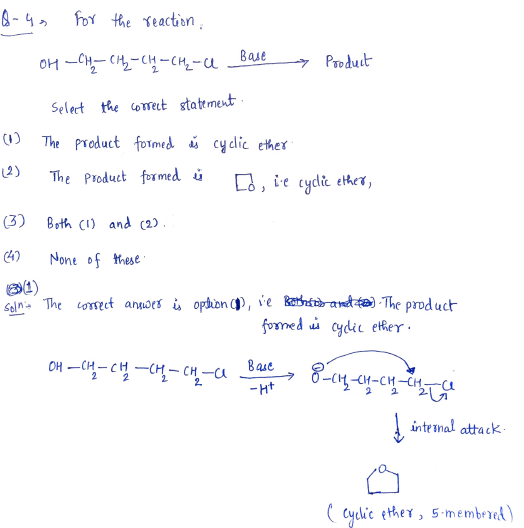 Q-4, For the reaction,
OH-CH2-CH2-CH2-CH2-Cl Base → Product
Select the correct statement.
(1) The product formed is cyclic ether
(2) The product formed is , i.e cyclic ether,
(3) Both (1) and (2).
(4) None of these.
(1)
Soln:- The correct answer is option (1), i.e Both (1) and (2). The product
formed is cyclic ether.
OH-CH2-CH2-CH2-CH2-Cl Base -H+ → O⊖-CH2-CH2-CH2-CH2-Cl
↓ internal attack.
O
( cyclic ether, 5-membered)